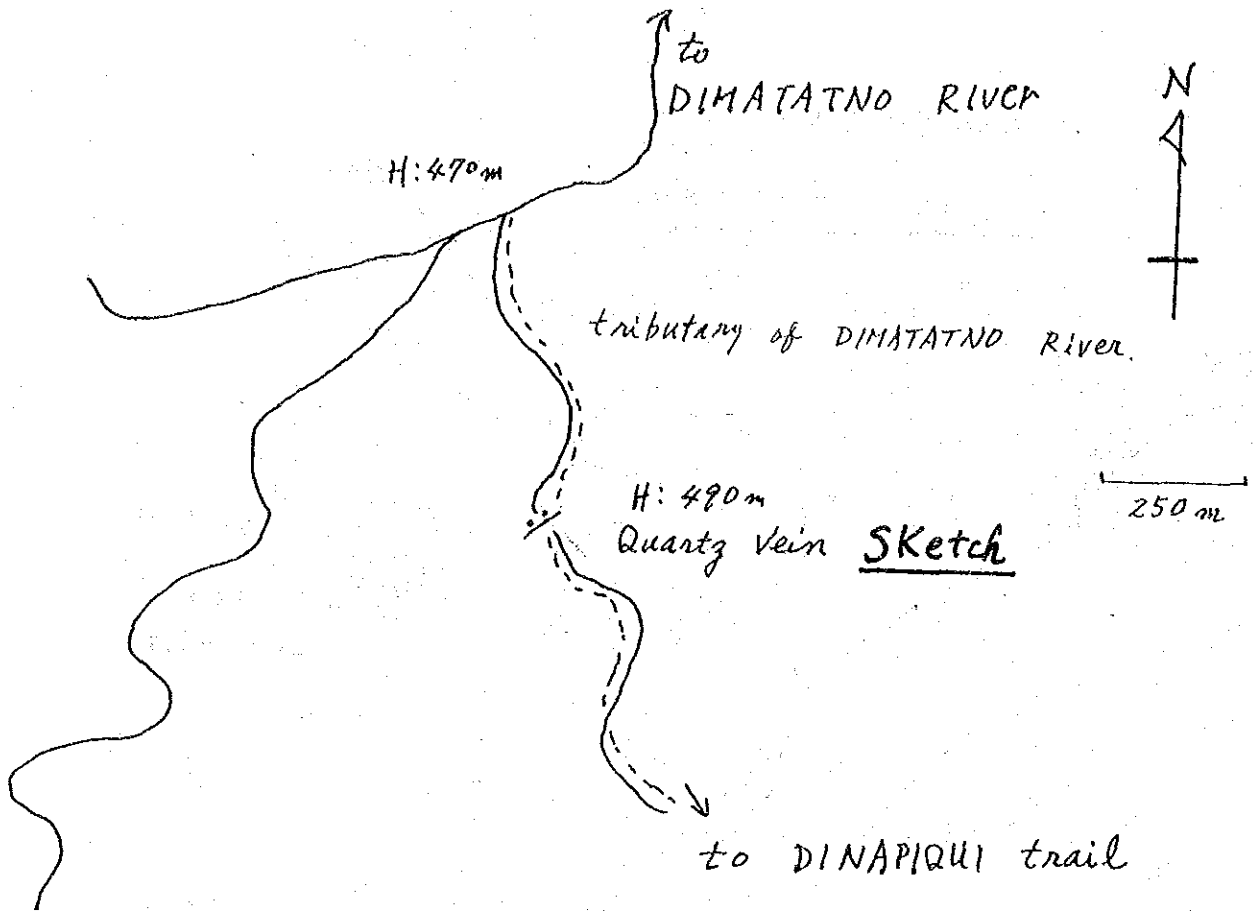 to
DIMATATNO River
N
H: 470m
tributary of DIMATATNO River.
250 m
H: 490m
Quartz Vein Sketch
to DINAPIQUI trail